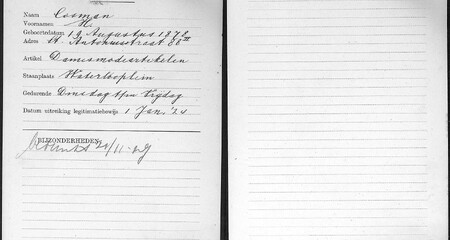 Naam Cosman
Voornamen H.
Geboortedatum 19 Augustus 1878
Adres St. Antoniesstraat 66 III
Artikel Damesmodeartikelen
Staanplaats Waterlooplein
Gedurende Dinsdag t/m Vrijdag
Datum uitreiking legitimatiebewijs 1 Jan. '24
BIJZONDERHEDEN
21/11-